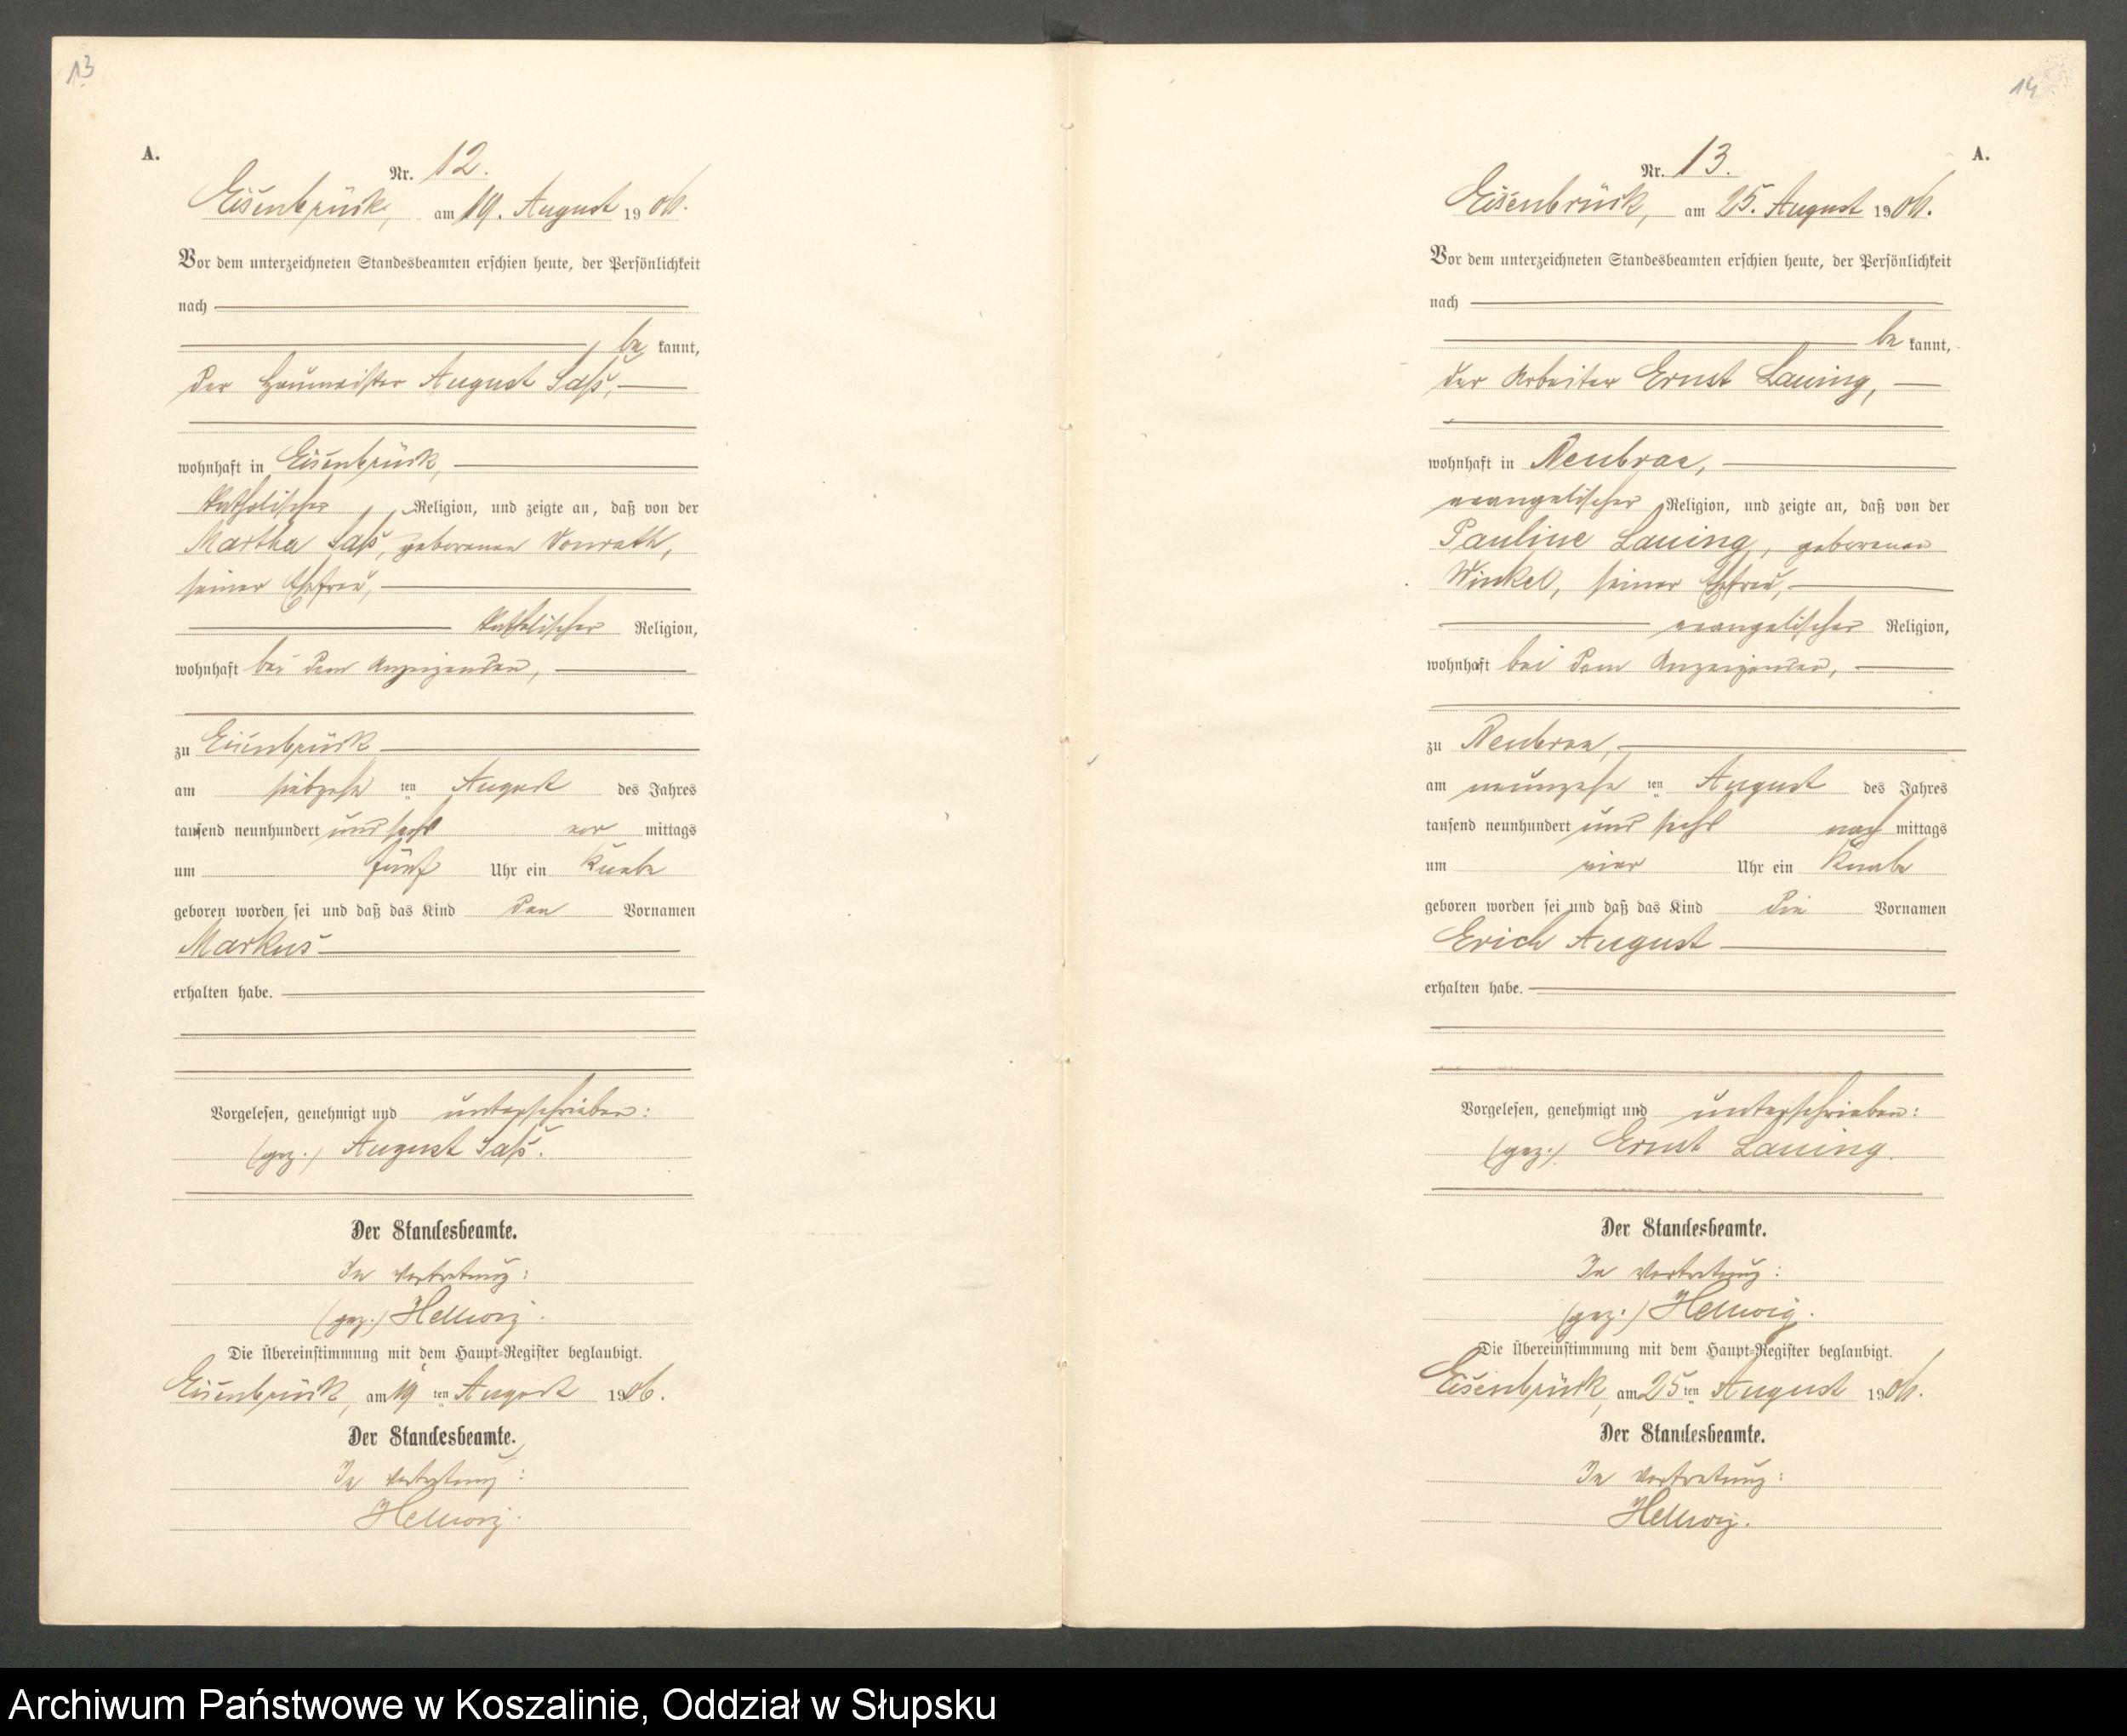 13
A.
Nr. 12.
Eisenbrück, am 19. August 1906.
Vor dem unterzeichneten Standesbeamten erschien heute, der Persönlichkeit
nach
be kannt,
der Haumeister August Saß,
wohnhaft in Eisenbrück,
katholischer Religion, und zeigte an, daß von der
Martha Saß, geborenen Vonrath,
seiner Ehefrau,
katholischer Religion,
wohnhaft bei dem Anzeigenden,
zu Eisenbrück
am siebzehn ten August des Jahres
tausend neunhundert und sechs vor mittags
um fünf Uhr ein Knabe
geboren worden sei und daß das Kind den Vornamen
Markus
erhalten habe.
Vorgelesen, genehmigt und unterschrieben:
(gez.) August Saß.
Der Standesbeamte.
In Vertretung:
(gez.) Hellwig.
Die Übereinstimmung mit dem Haupt-Register beglaubigt.
Eisenbrück, am 19 ten August 1906.
Der Standesbeamte.
In Vertretung:
Hellwig.
14
A.
Nr. 13.
Eisenbrück, am 25. August 1906.
Vor dem unterzeichneten Standesbeamten erschien heute, der Persönlichkeit
nach
be kannt,
der Arbeiter Ernst Lauing,
wohnhaft in Neubraa,
evangelischer Religion, und zeigte an, daß von der
Pauline Lauing, geborenen
Winkel, seiner Ehefrau,
evangelischer Religion,
wohnhaft bei dem Anzeigenden,
zu Neubraa,
am neunzehn ten August des Jahres
tausend neunhundert und sechs nach mittags
um vier Uhr ein Knabe
geboren worden sei und daß das Kind die Vornamen
Erich August
erhalten habe.
Vorgelesen, genehmigt und unterschrieben:
(gez.) Ernst Lauing.
Der Standesbeamte.
In Vertretung:
(gez.) Hellwig.
Die Übereinstimmung mit dem Haupt-Register beglaubigt.
Eisenbrück, am 25 ten August 1906.
Der Standesbeamte.
In Vertretung:
Hellwig.
Archiwum Państwowe w Koszalinie, Oddział w Słupsku